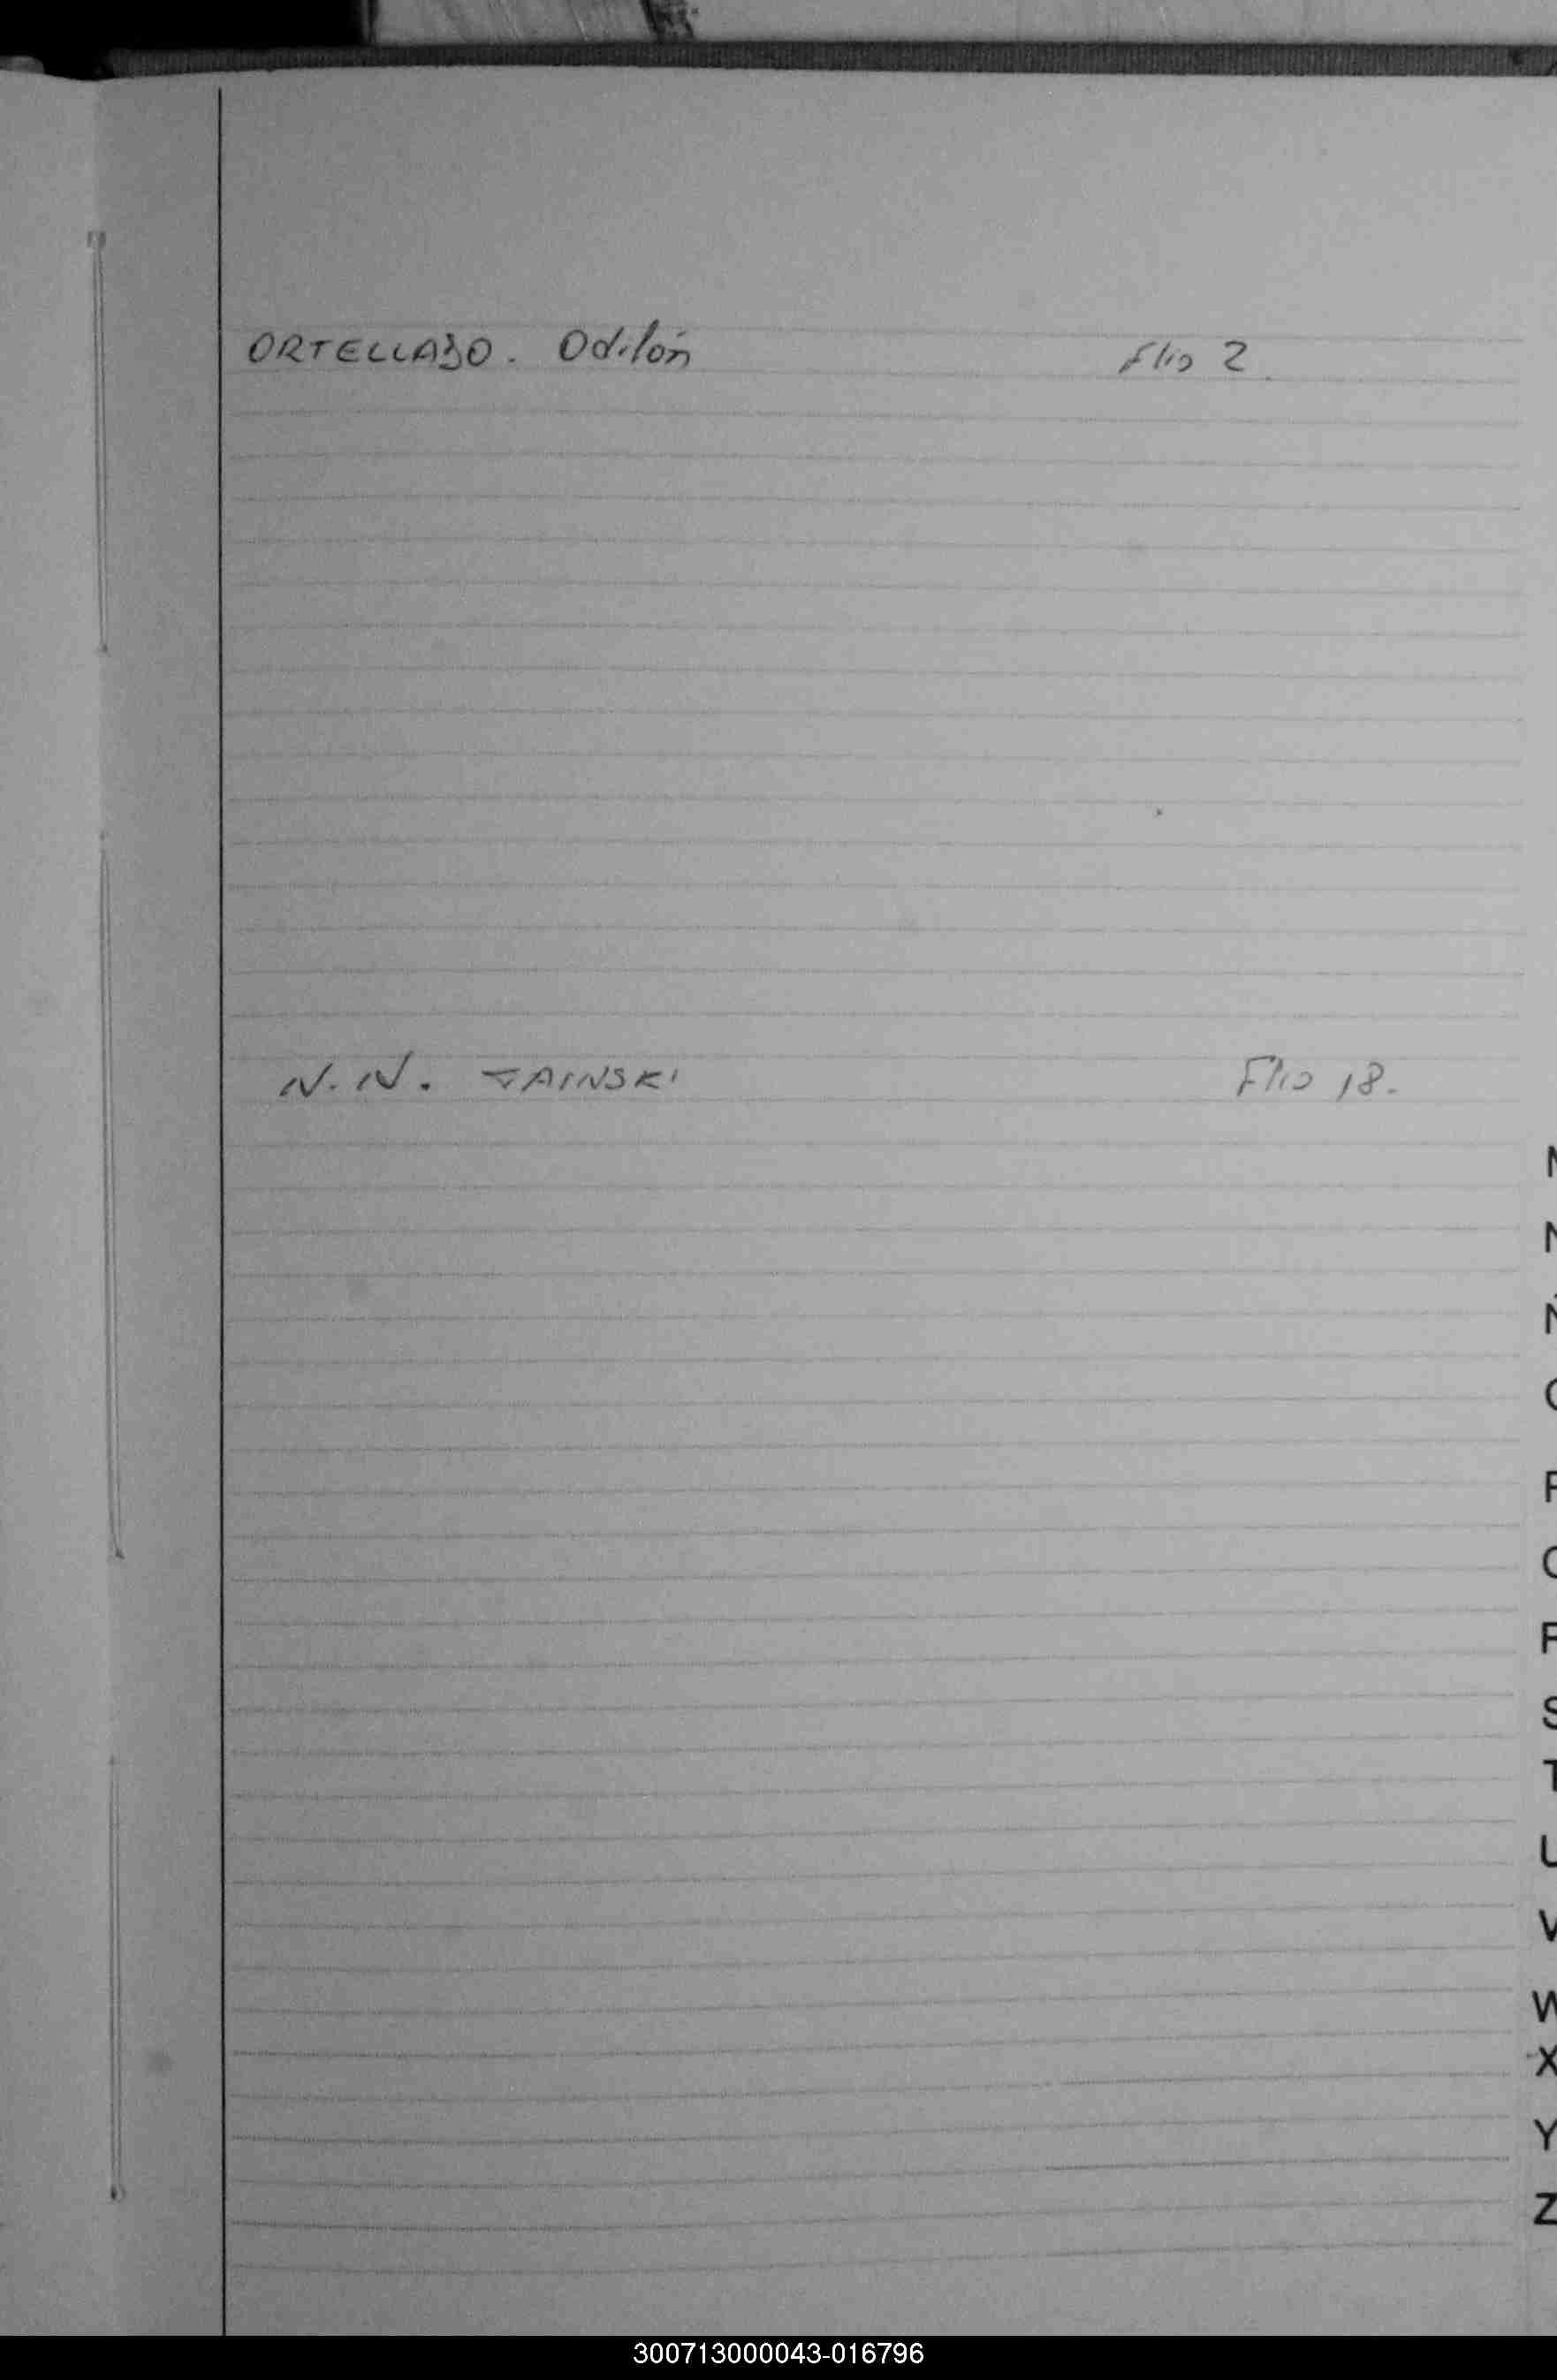 ORTELLADO. Odilón Flio 2
N.N. FAINSKI Flio 18.
N
O
P
Q
R
S
T
U
V
W
X
Y
Z
300713000043-016796